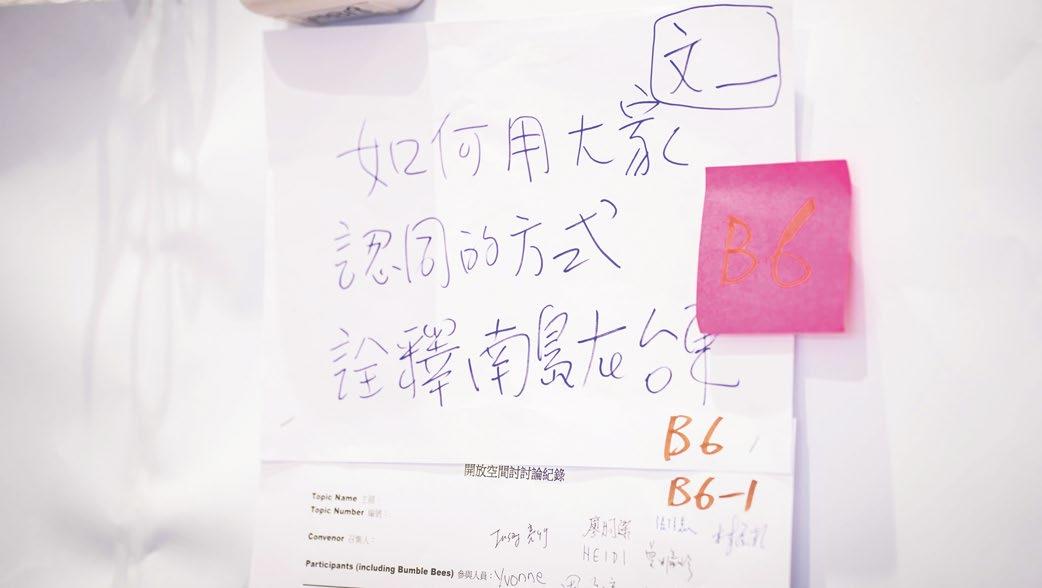 文一
如何用大家
認同的方式
B6
詮釋南島在台東
B6
B6-1
開放空間討討論紀錄
Topic Name 主題：
Topic Number 編號：
Convenor 召集人：
HEIDI
Participants (including Bumble Bees) 參與人員：Yvonne